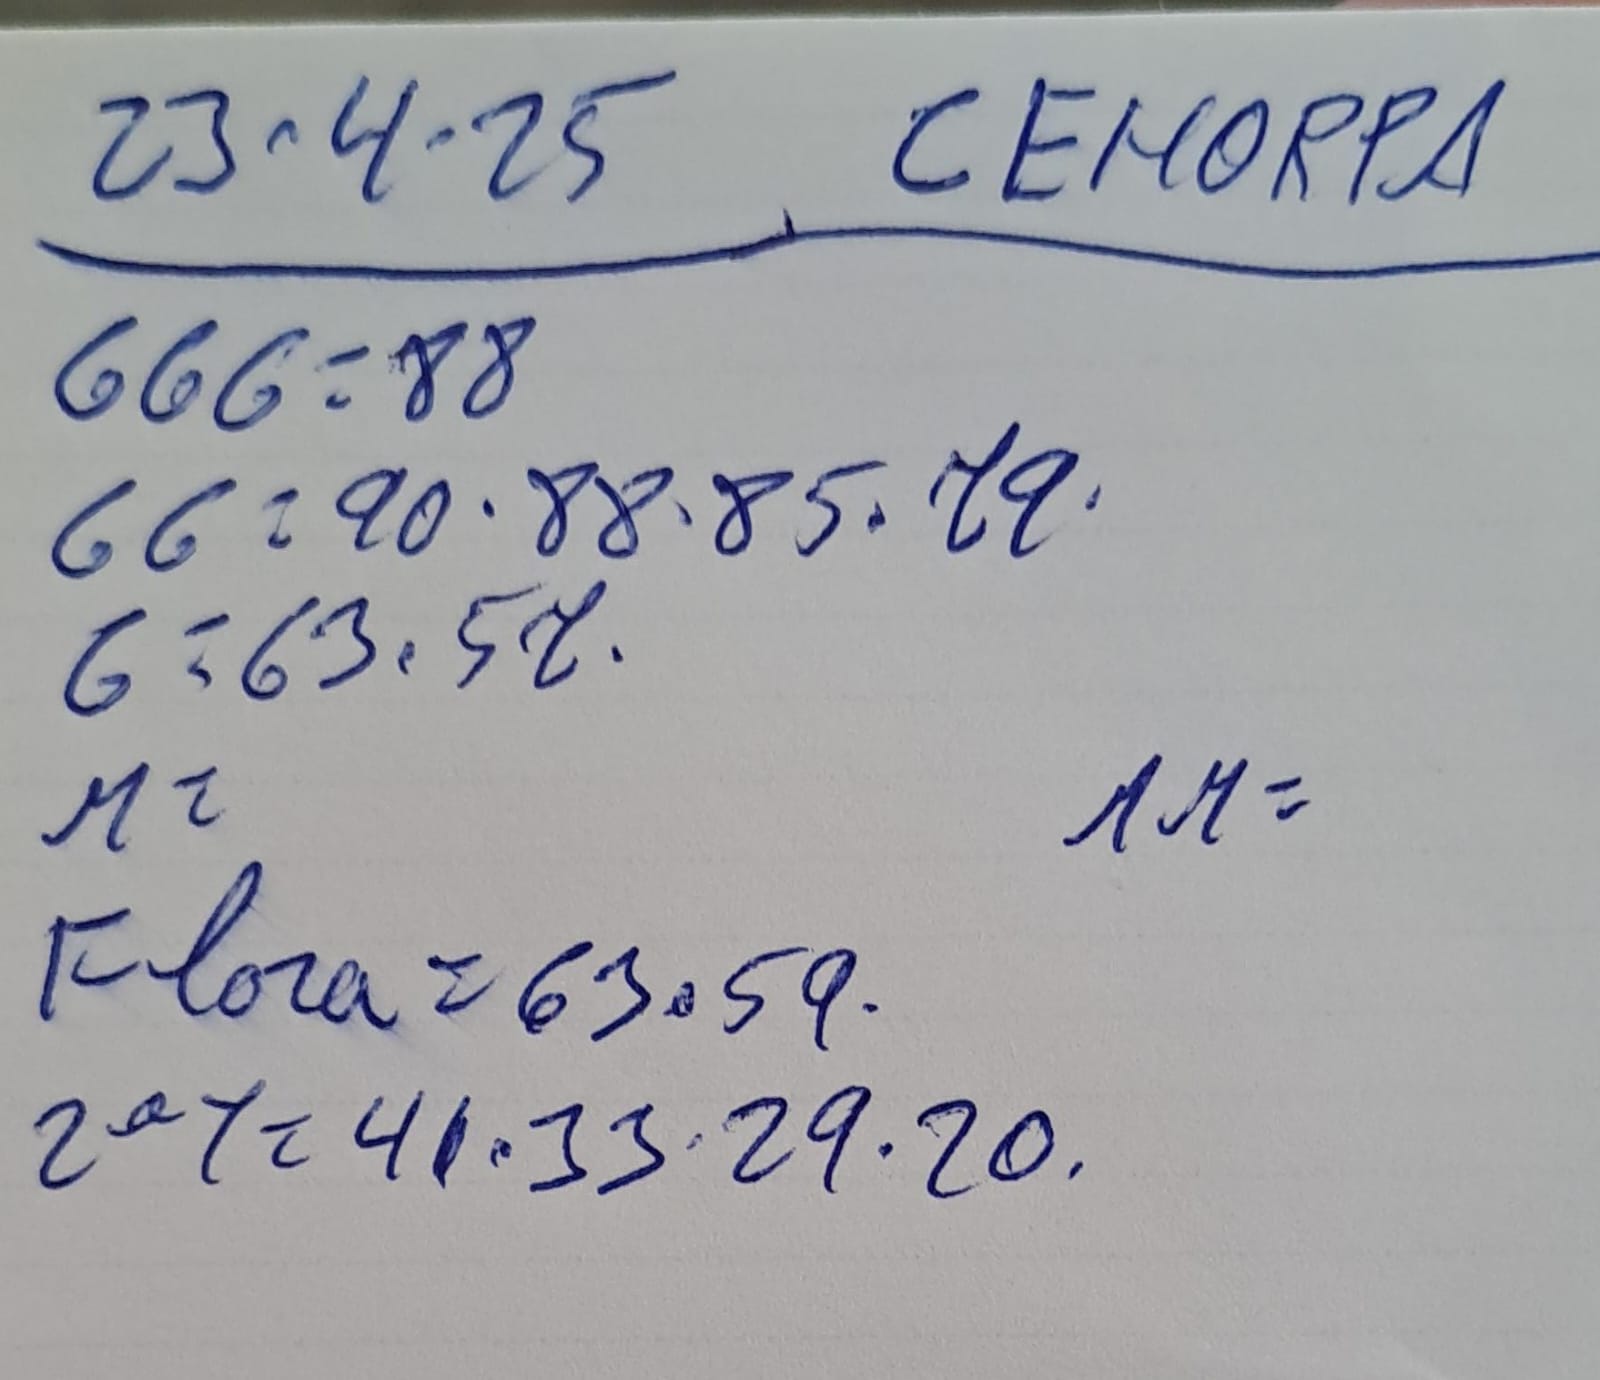 23.4.25 CEMORPA
GGG=88
GG=90.88.85.79.
G=63.57.
M= MM=
Flora=63.59.
2ªY=41.33.29.20.